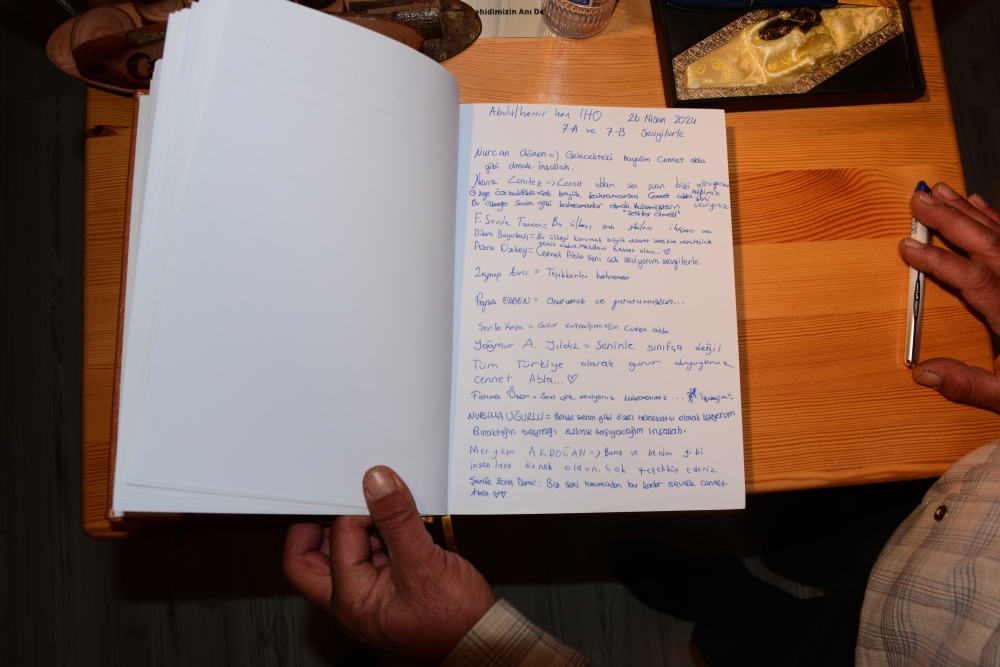 ehidimizin Anı De
Abdülhamit han İHO 26 Nisan 2024
7-A ve 7-B Sevgilerle
Nurcan Gönen =) Gelecekteki hayalim Cennet abla
gibi olmak. İnşallah.
=) Cennet ablam sen şuan bizi görüyorsun
büyük kahramansın Cennet abla
Bu ülkeye senin gibi kahramanlar
"Şehitler ölmez!"
F. Sevde = Bu ülkeyi
Dilara = Bu ülkeyi korumak büyük cesaret
şehit oldun. Mekânın Cennet olsun... ♡
Azra Özbey = Cennet Abla seni çok seviyorum sevgilerle.
Zeynep Avcı = Teşekkürler kahraman
Feyza ERDEN = Onurumuz ve gururumuzsun...
Şerife Kaya = Gurur kaynağımızsın Cennet abla
Yağmur A. Yıldız = Seninle sınıfça değil
Tüm Türkiye olarak gurur duyuyoruz
Cennet Abla... ♡
Fatıma = Seni çok seviyoruz kahramanımız...
NURSİMA UĞURLU = Bende senin gibi özel harekatçı olmak istiyorum
Bıraktığın bayrağı azimle taşıyacağım İnşallah.
Meryem AKDOĞAN =) Bana ve benim gibi
insanlara örnek oldun. Çok teşekkür ederiz
Şerife Demir: Biz seni tanımadan bu kadar sevdik Cennet
Abla ♡♡